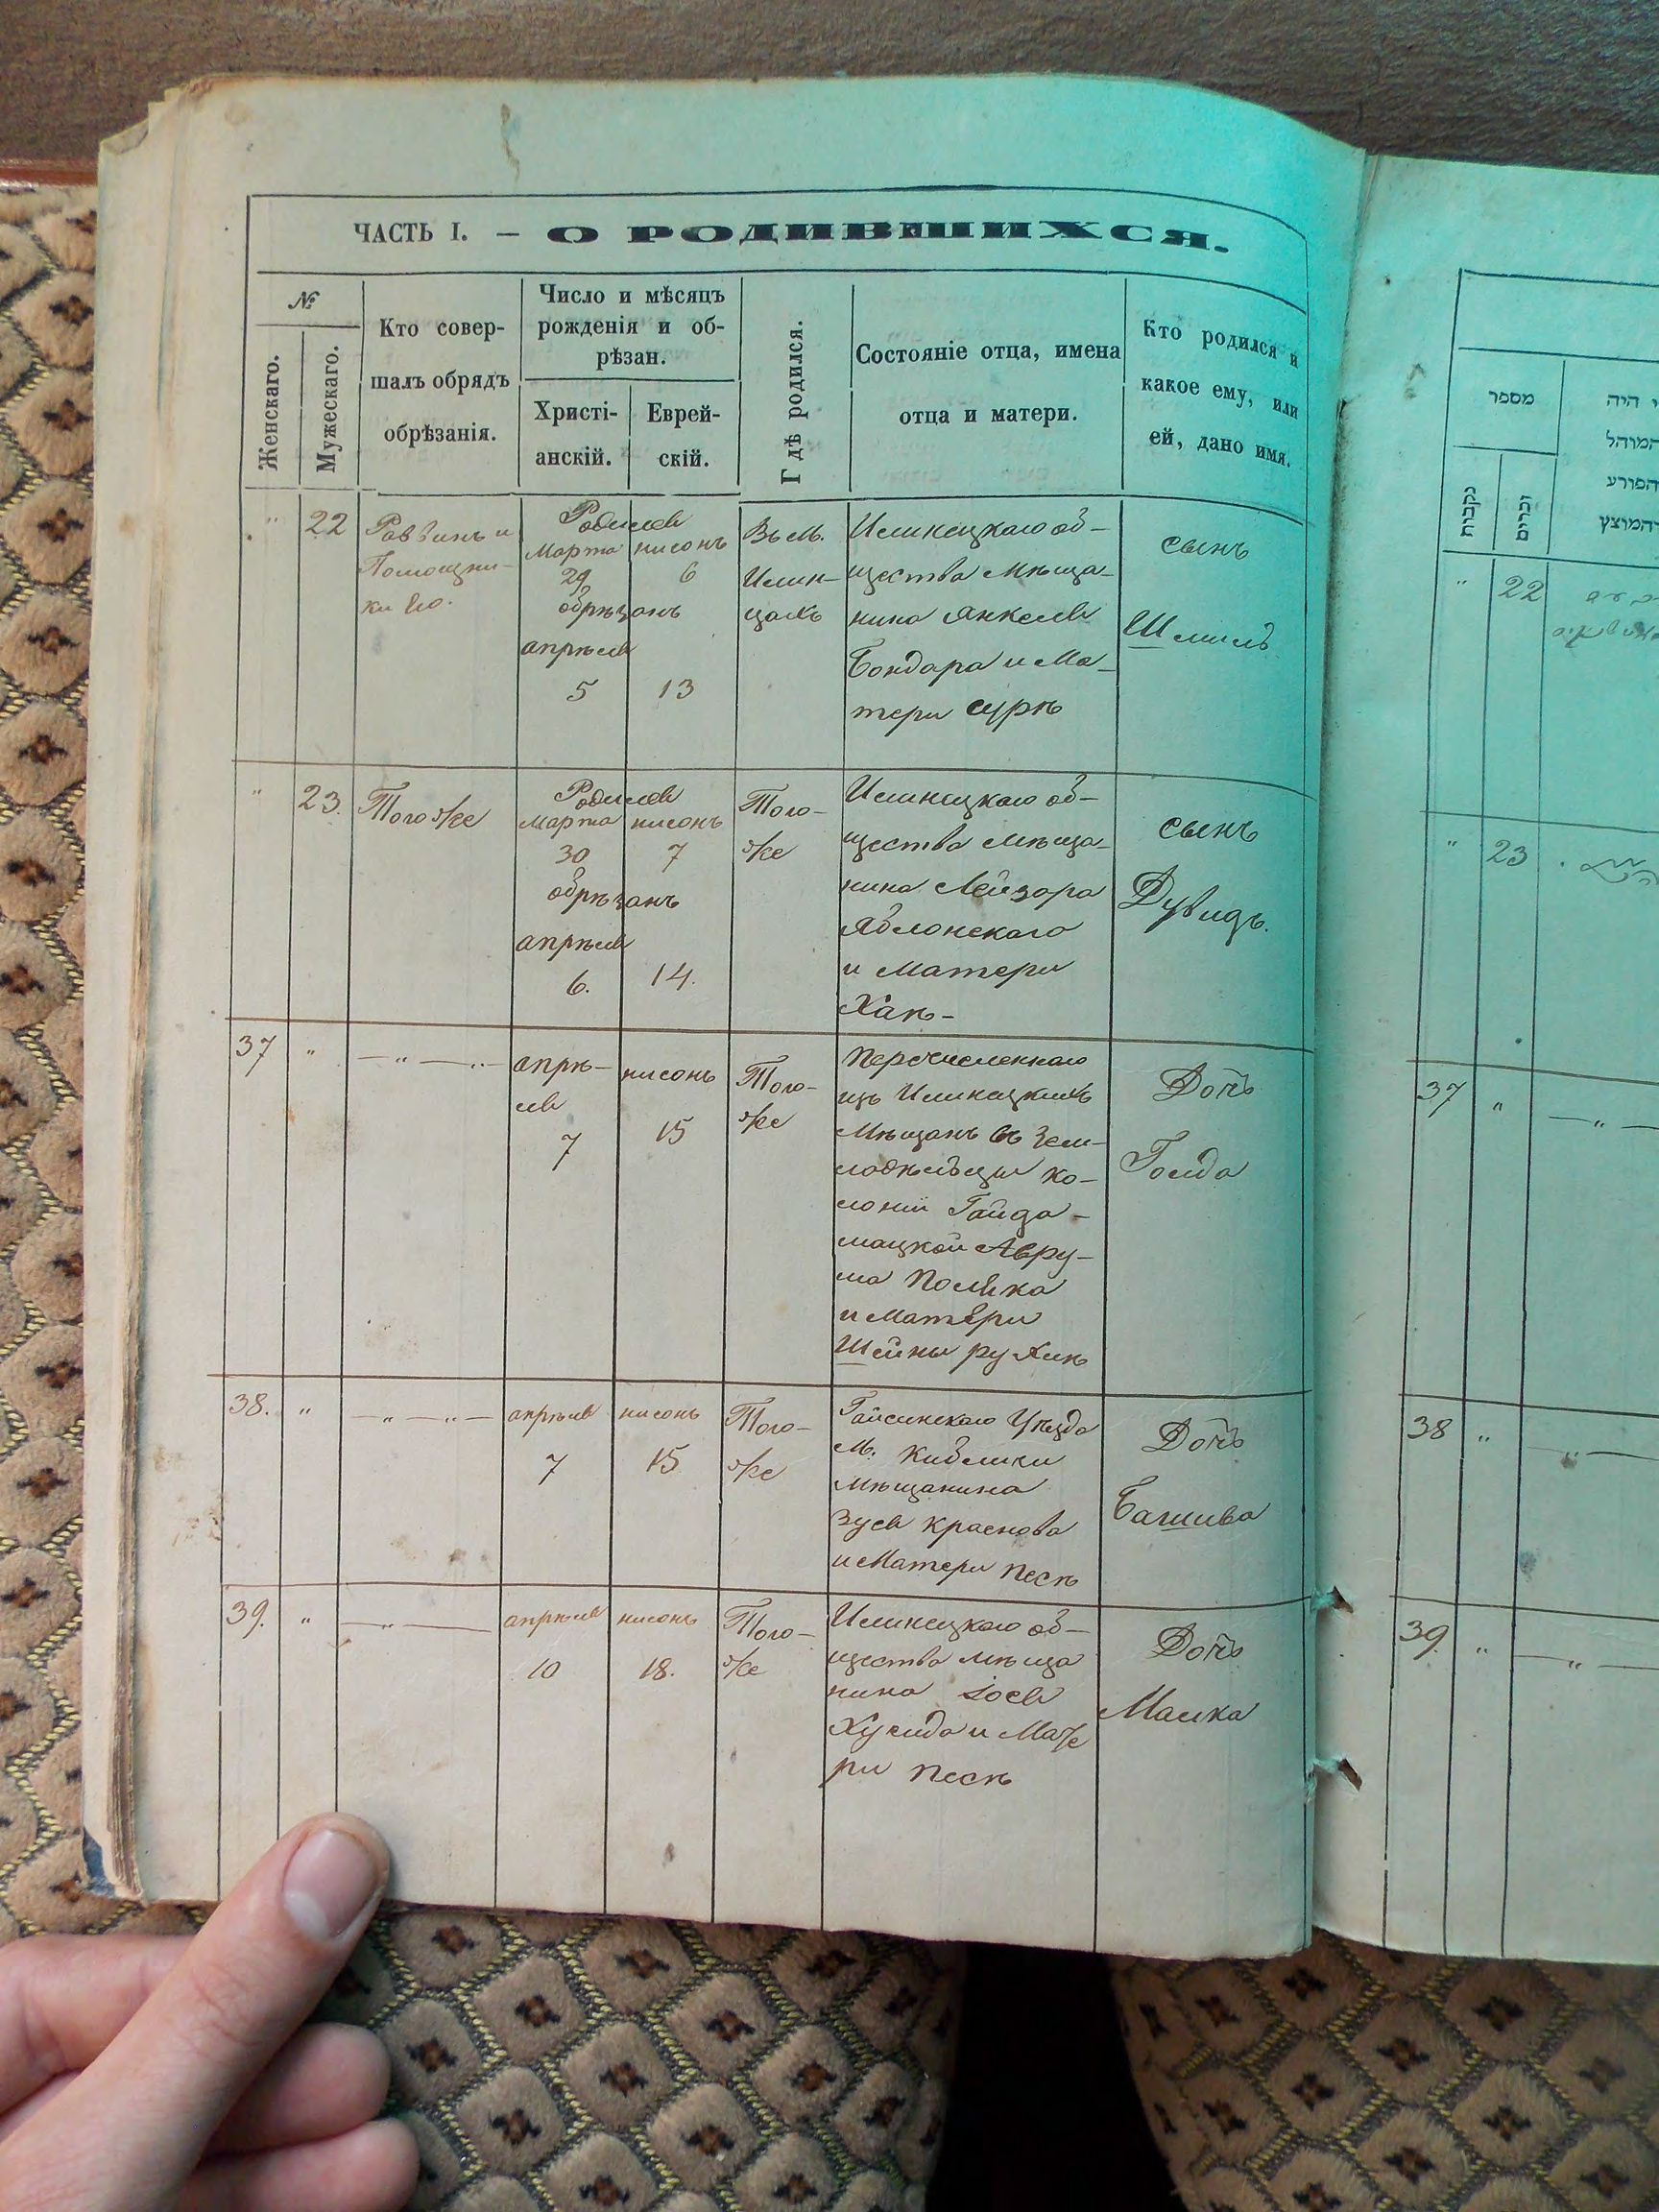 ЧАСТЬ I. — О РОДИВШИХСЯ.
№
Женскаго.
Мужескаго.
Кто совер-
шалъ обрядъ
обрѣзанія.
Число и мѣсяцъ
рожденія и об-
рѣзан.
Христі-
анскій.
Еврей-
скій.
Гдѣ родился.
Состояніе отца, имена
отца и матери.
Кто родился и
какое ему, или
ей, дано имя.
" 22
Раввинъ и
Помощни-
ки Его.
Родился
Марта нисонъ
29 6
обрѣзанъ
апрѣля
5 13
Въ М.
Илин-
цахъ
Илинецкаго об-
щества мѣща-
нина Янкеля
Бондара и Ма-
тери Сурѣ
сынъ
Шмиль
" 23.
Того же
Родился
марта нисонъ
30 7
обрѣзанъ
апрѣля
6. 14.
Того-
же
Илинецкаго об-
щества мѣща-
нина Лейзора
Яблонскаго
и Матери
Ханѣ-
сынъ
Дувидъ.
37 "
— " — " —
апрѣ-
ля
7
нисонъ
15
Того-
же
Перечисленнаго
изъ Илинецкихъ
Мѣщанъ въ Зем-
ладѣльцы ко-
лоніи Гайда-
мацкой Авру-
ма Поляка
и Матери
Шейны рухлѣ
Дочь
Голда
38. "
— " — " —
апрѣля нисонъ
7 15
Того-
же
Гайсинскаго Уѣзда
М. Кублики
мѣщанина
Зуся Краснова
и Матери Песѣ
Дочь
Башива
39. "
— " —
апрѣля нисонъ
10 18.
Того-
же
Илинецкаго об-
щества мѣща
нина Іося
Хусида и Мате
ри Песѣ
Дочь
Малка
מספר
נקבות
זכרים
י היה
המוהל
הפורע
המוצץ
" 22
" 23
37 " — " —
38 " — " —
39. " — " —